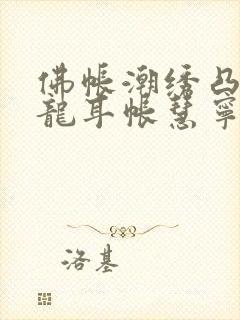 佛帐潮绣凸
龍耳帐慧寧
洛基